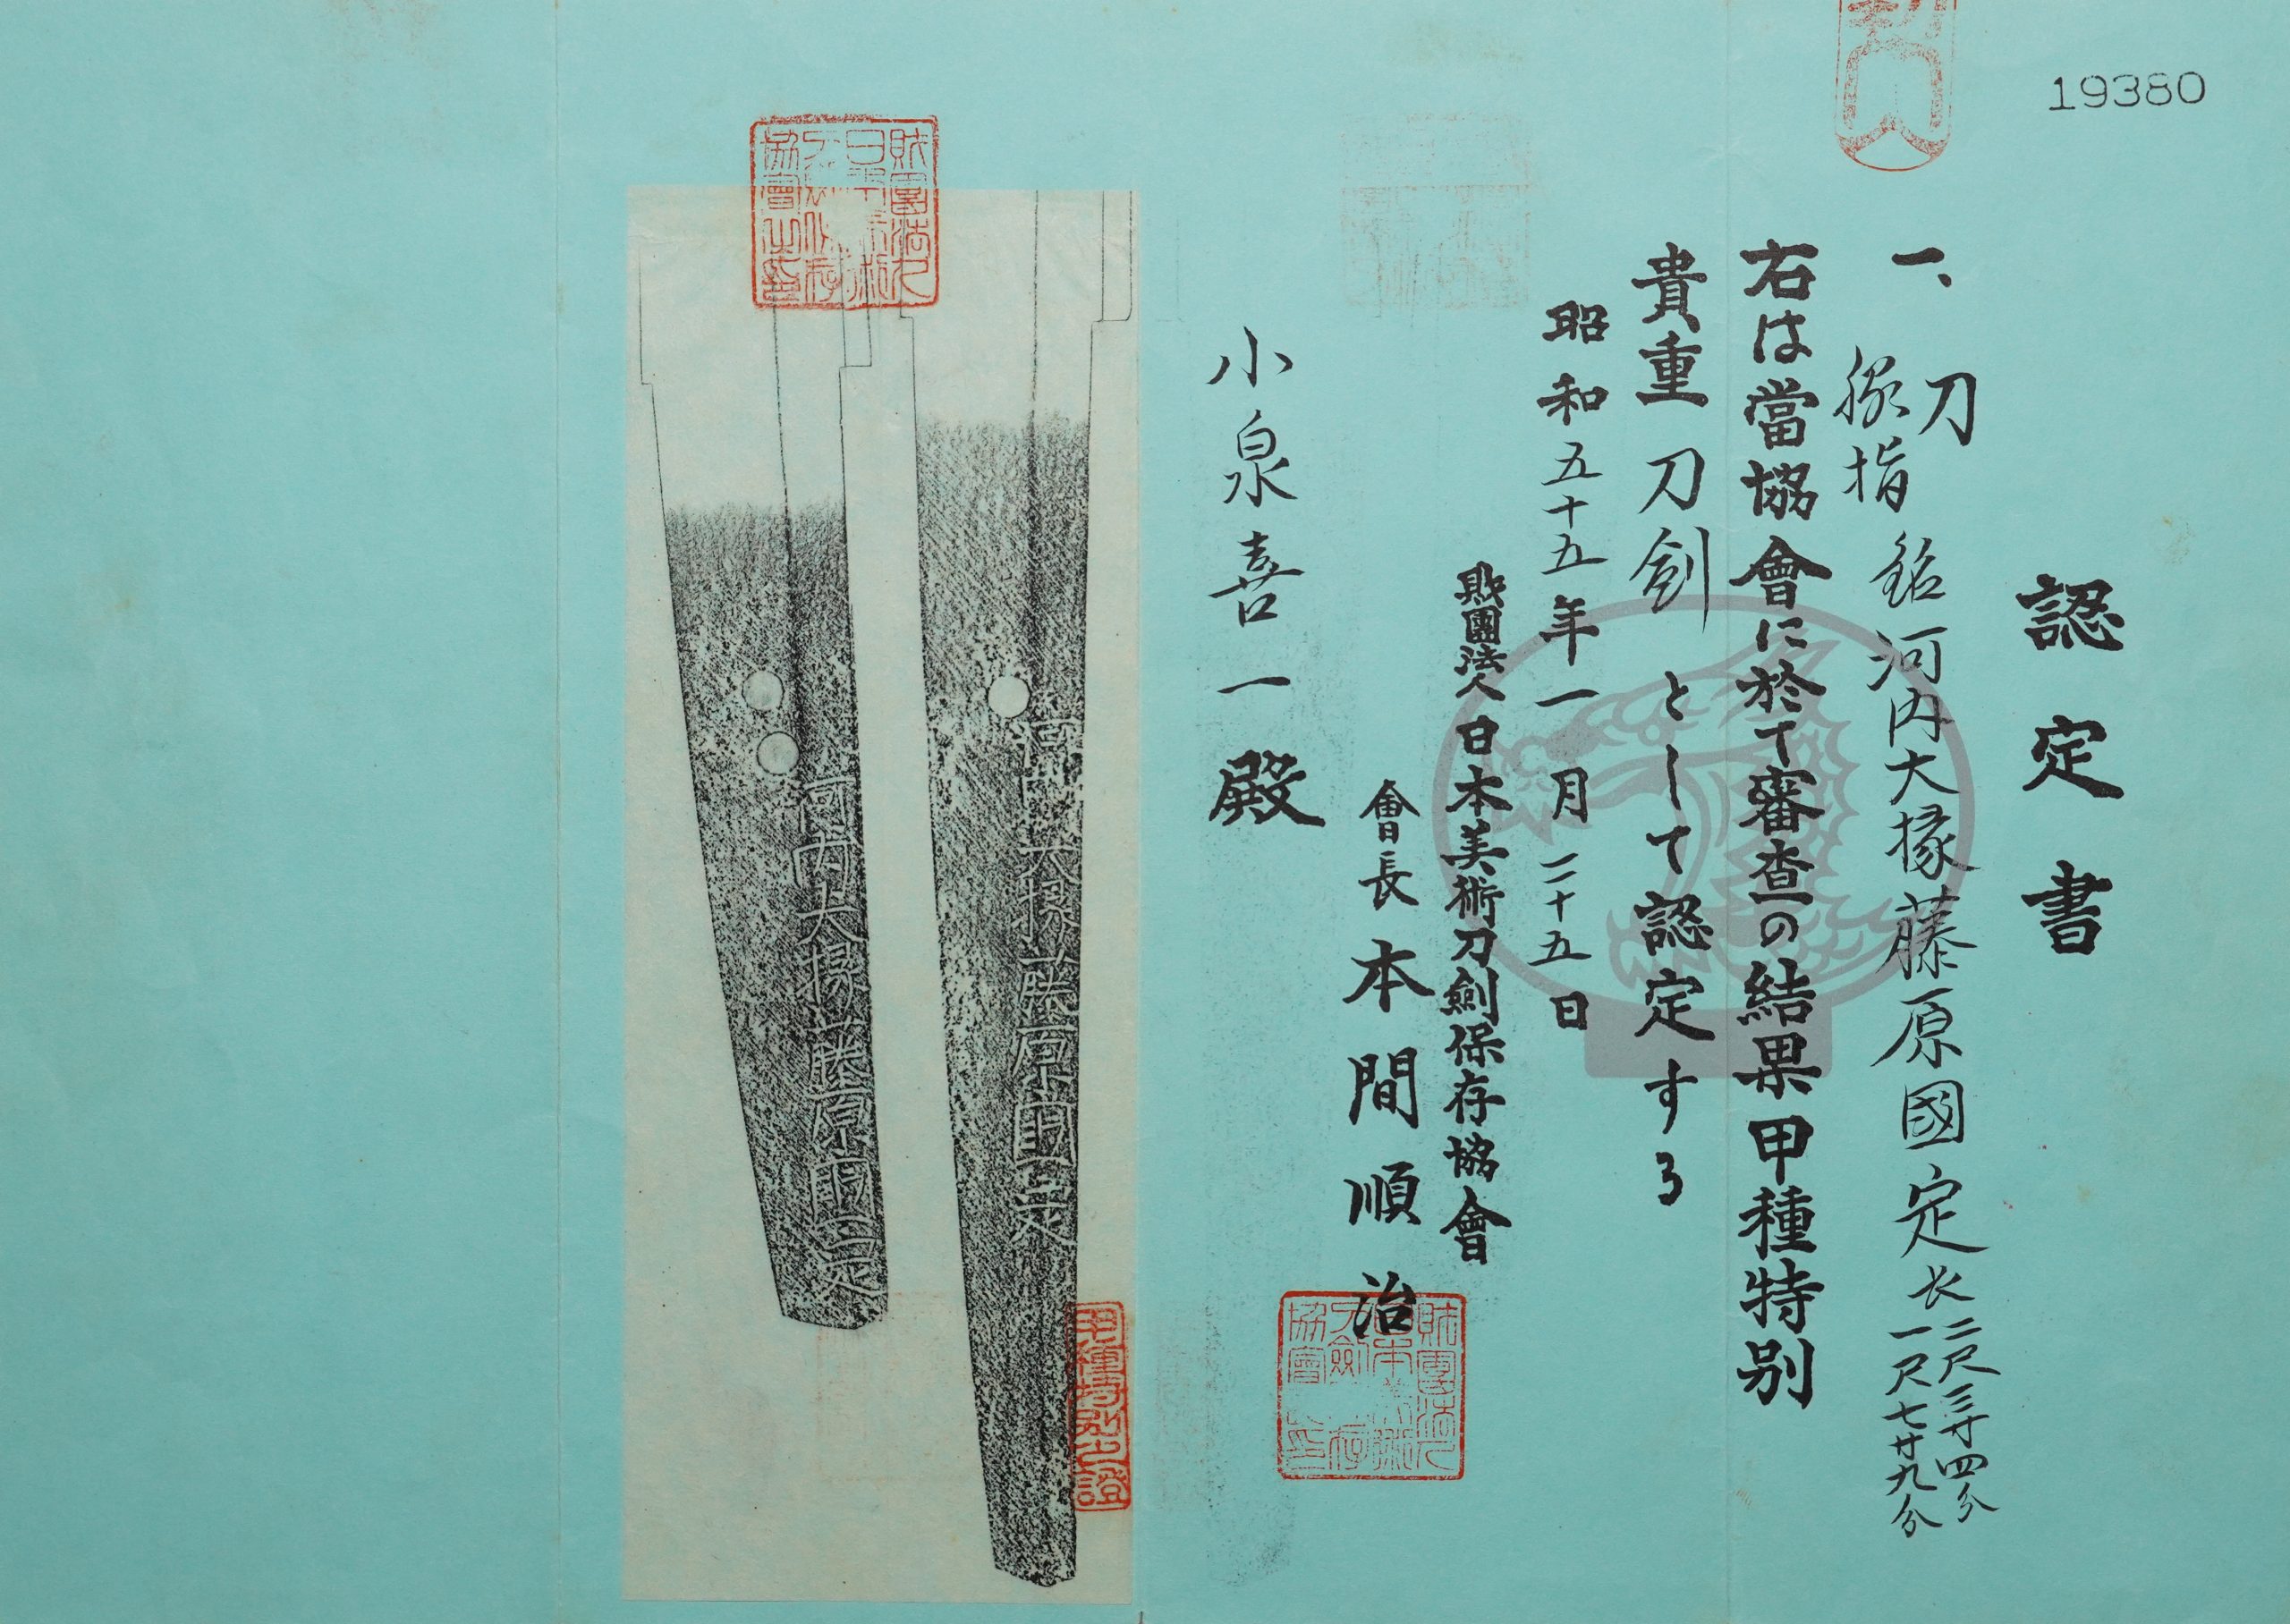 19380
認定書
一、
刀
脇指
銘河内大掾藤原國定
長
二尺三寸四分
一尺七寸九分
右は當協會に於て審査の結果甲種特別
貴重刀剣として認定する
昭和五十五年一月二十五日
財團法人日本美術刀劍保存協會
會長本間順治
小泉喜一殿
河内大掾藤原國定
河内大掾藤原國定
財團法人日本美術刀劍保存協會之印
財團法人日本美術刀劍保存協會之印
甲種特別之證